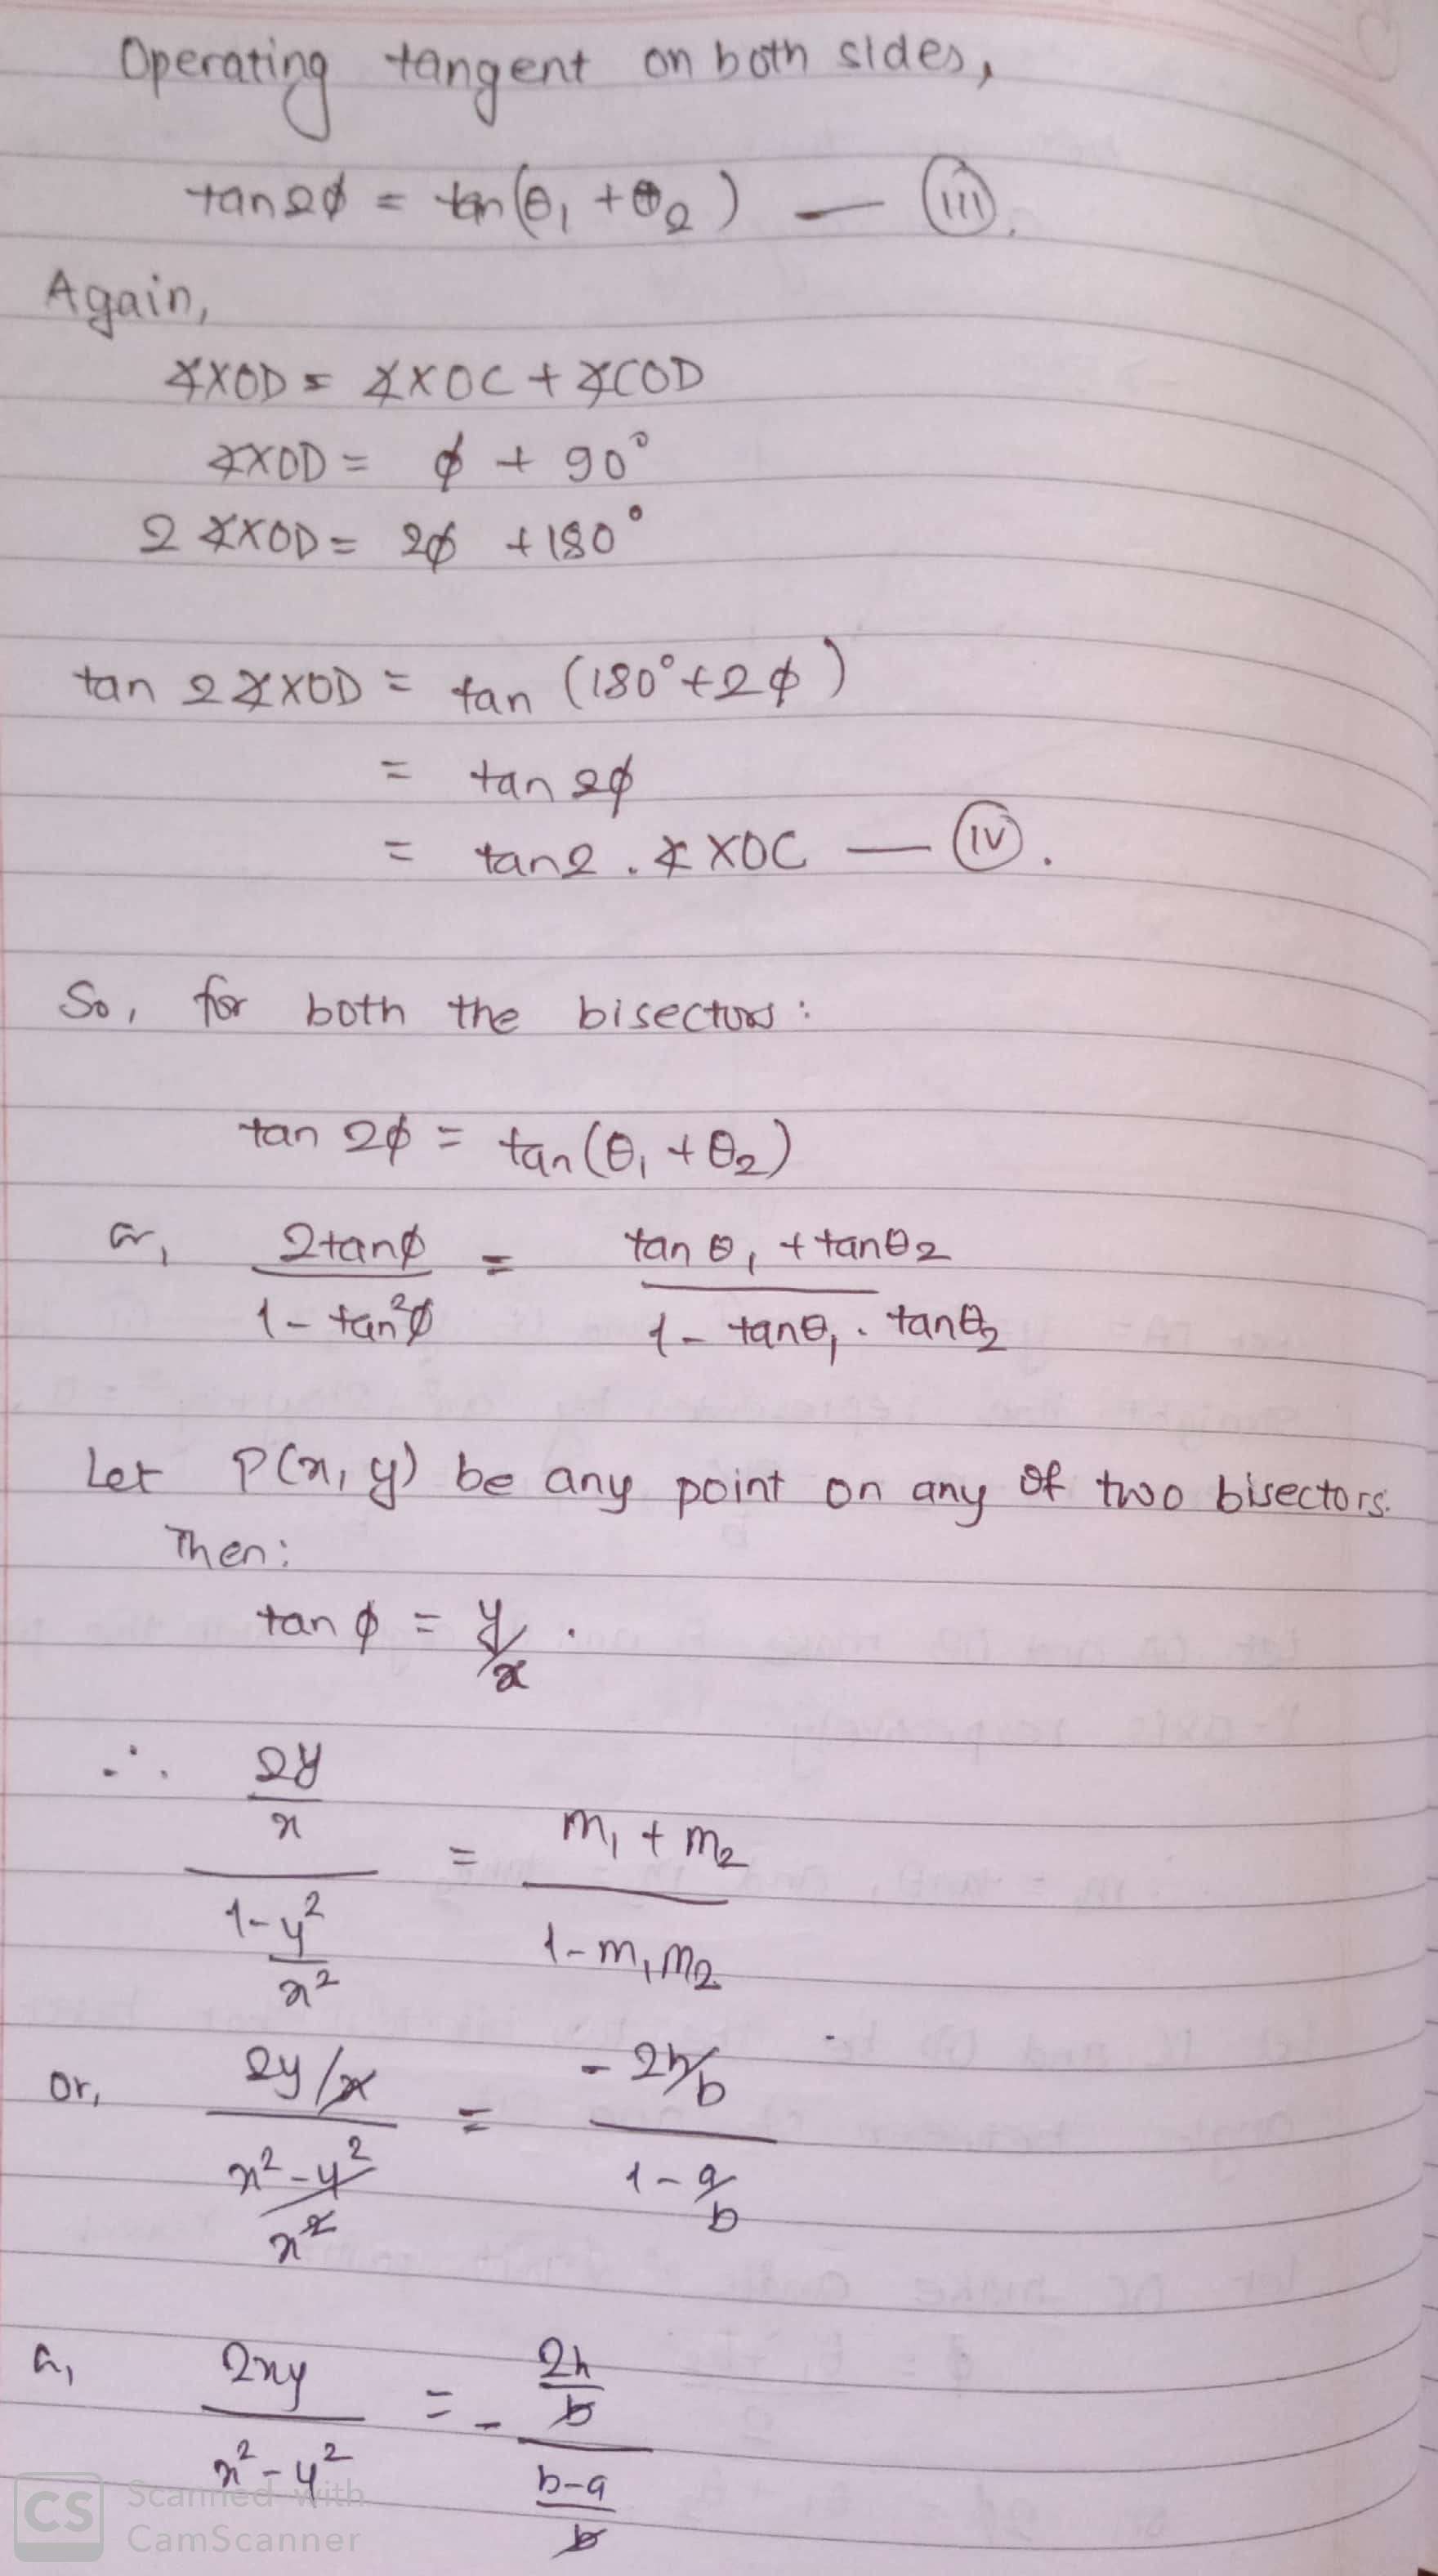 Operating tangent on both sides,
tan2ϕ = tan(θ₁ + θ₂) — (iii).
Again,
∡XOD = ∡XOC + ∡COD
∡XOD = ϕ + 90°
2 ∡XOD = 2ϕ + 180°
tan 2∡XOD = tan (180° + 2ϕ)
= tan 2ϕ
= tan2 . ∡XOC — (iv).
So, for both the bisectors :
tan 2ϕ = tan(θ₁ + θ₂)
or, 2tanϕ / 1 - tan²ϕ = tanθ₁ + tanθ₂ / 1 - tanθ₁ . tanθ₂
Let P(x, y) be any point on any of two bisectors.
Then:
tan ϕ = y/x .
∴ 2y/x / 1 - y²/x² = m₁ + m₂ / 1 - m₁m₂
or, 2y/x / x² - y²/x² = - 2h/b / 1 - a/b
or, 2xy / x² - y² = - 2h/b / b-a/b
CS Scanned with
CamScanner